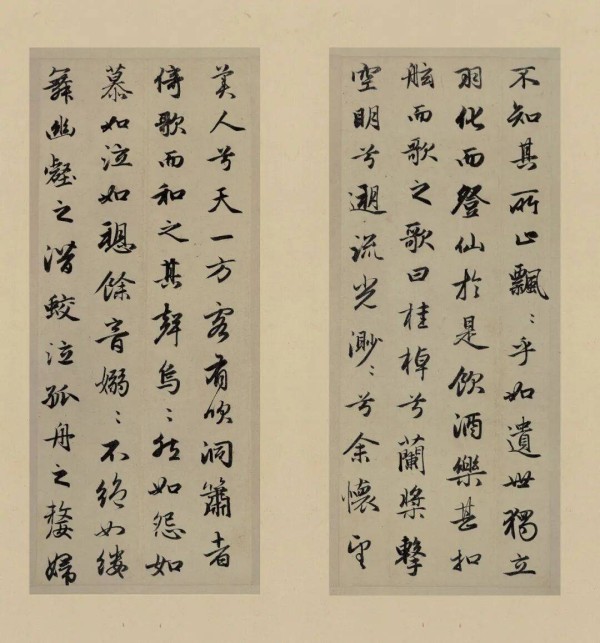 不知其所止飄〻乎如遺世獨立
羽化而登仙於是飲酒樂甚扣
舷而歌之歌曰桂棹兮蘭槳擊
空明兮遡流光渺〻兮余懷望
美人兮天一方客有吹洞簫者
倚歌而和之其聲烏〻然如怨如
慕如泣如訴餘音嫋〻不絕如縷
舞幽壑之潛蛟泣孤舟之嫠婦